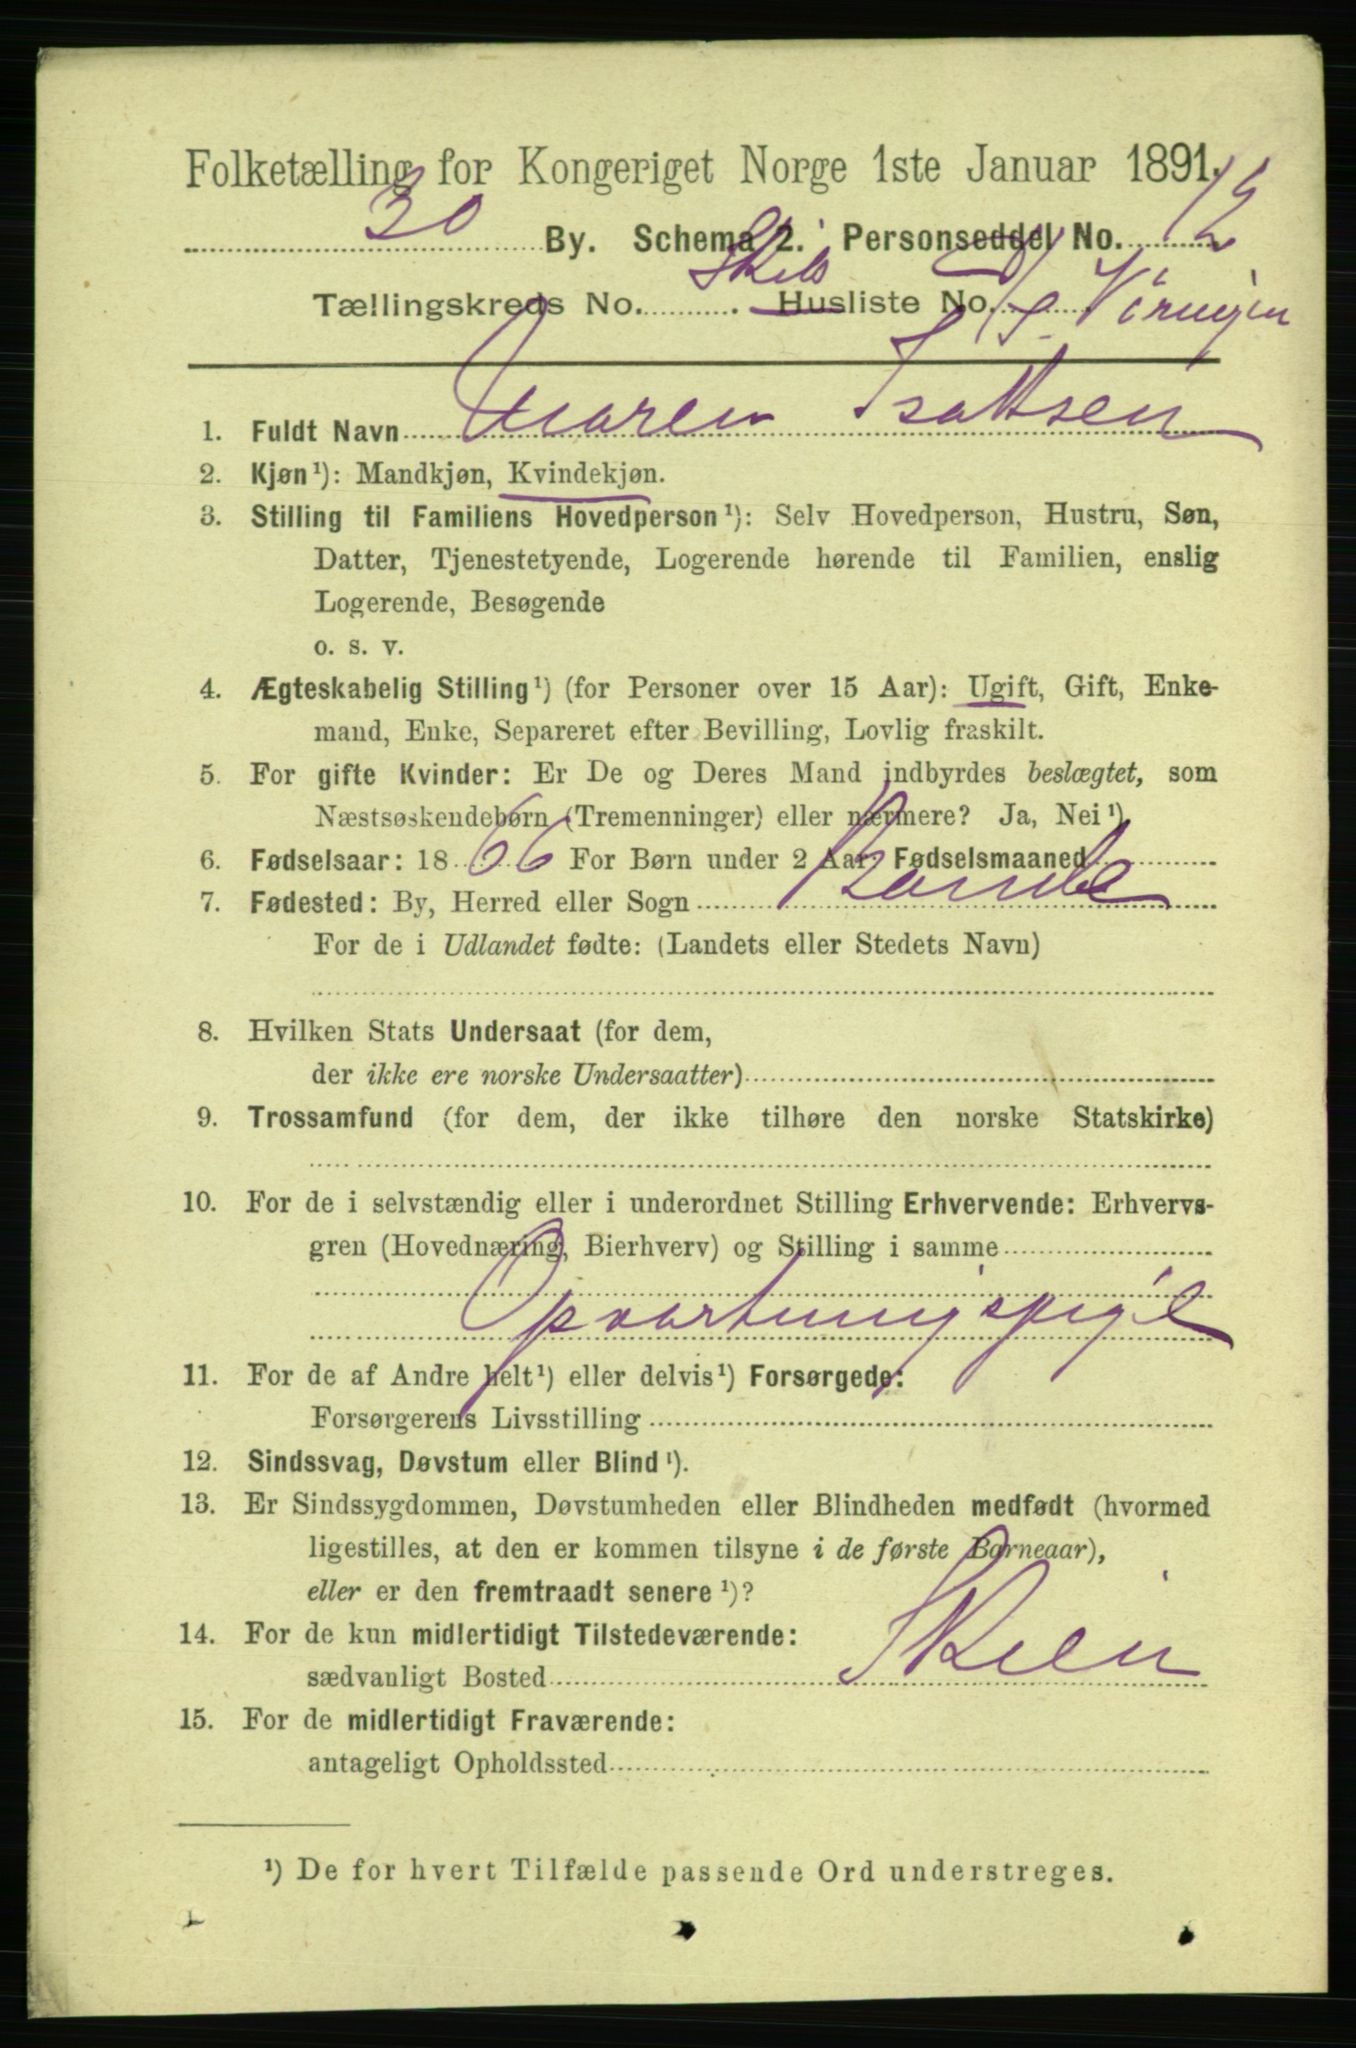 Folketælling for Kongeriget Norge 1ste Januar 1891.
30 By. Schema 2. Personseddel No. 12
Tællingskreds No. Skibs Husliste No. D/S Virugin
1. Fuldt Navn Maren Isaksen
2. Kjøn¹): Mandkjøn, Kvindekjøn.
3. Stilling til Familiens Hovedperson¹): Selv Hovedperson, Hustru, Søn,
Datter, Tjenestetyende, Logerende hørende til Familien, enslig
Logerende, Besøgende
o. s. v.
4. Ægteskabelig Stilling¹) (for Personer over 15 Aar): Ugift, Gift, Enke-
mand, Enke, Separeret efter Bevilling, Lovlig fraskilt.
5. For gifte Kvinder: Er De og Deres Mand indbyrdes beslægtet, som
Næstsøskendebørn (Tremenninger) eller nærmere? Ja, Nei¹)
6. Fødselsaar: 1866 For Børn under 2 Aar, Fødselsmaaned
7. Fødested: By, Herred eller Sogn Bamble
For de i Udlandet fødte: (Landets eller Stedets Navn)
8. Hvilken Stats Undersaat (for dem,
der ikke ere norske Undersaatter)
9. Trossamfund (for dem, der ikke tilhøre den norske Statskirke)
10. For de i selvstændig eller i underordnet Stilling Erhvervende: Erhvervs-
gren (Hovednæring, Bierhverv) og Stilling i samme
Opvartningspige
11. For de af Andre helt¹) eller delvis¹) Forsørgede:
Forsørgerens Livsstilling
12. Sindssvag, Døvstum eller Blind¹).
13. Er Sindssygdommen, Døvstumheden eller Blindheden medfødt (hvormed
ligestilles, at den er kommen tilsyne i de første Barneaar),
eller er den fremtraadt senere¹)?
14. For de kun midlertidigt Tilstedeværende:
sædvanligt Bosted Skien
15. For de midlertidigt Fraværende:
antageligt Opholdssted
¹) De for hvert Tilfælde passende Ord understreges.